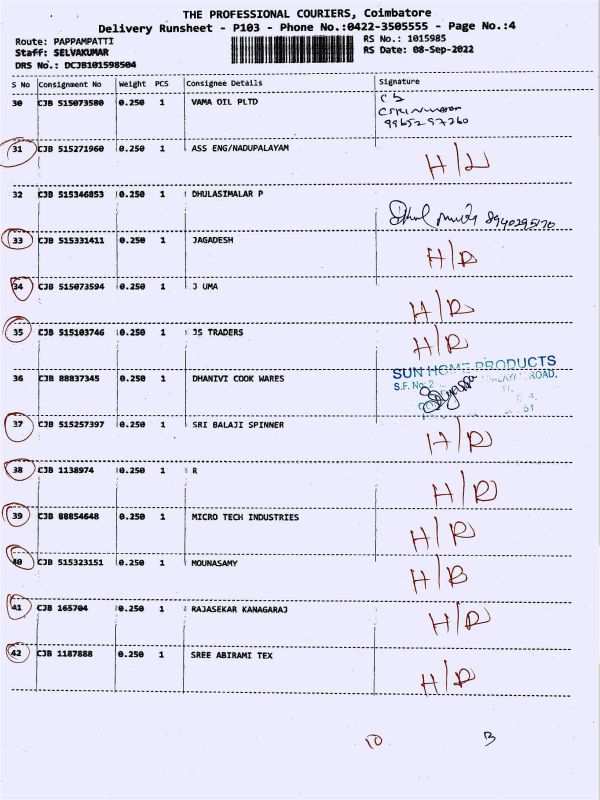 THE PROFESSIONAL COURIERS, Coimbatore
Delivery Runsheet - P103 - Phone No.:0422-3505555 - Page No.:4
Route: PAPPAMPATTI
RS No.: 1015985
Staff: SELVAKUMAR
RS Date: 08-Sep-2022
DRS No.: DCJB101598504
S No Consignment No Weight PCS Consignee Details Signature
30 CJB 515073580 0.250 1 VAMA OIL PLTD
31 CJB 515271960 0.250 1 ASS ENG/NADUPALAYAM
32 CJB 515346853 0.250 1 DHULASIMALAR P
33 CJB 515331411 0.250 1 JAGADESH H/R
34 CJB 515073594 0.250 1 J UMA H/R
35 CJB 515103746 0.250 1 JS TRADERS H/R
36 CJB 88837345 0.250 1 DHANIVI COOK WARES SUN HOME PRODUCTS
S.F. No. 2 ROAD,
37 CJB 515257397 0.250 1 SRI BALAJI SPINNER H/R
38 CJB 1138974 0.250 1 R H/R
39 CJB 88854648 0.250 1 MICRO TECH INDUSTRIES H/R
40 CJB 515323151 0.250 1 MOUNASAMY H/R
41 CJB 165704 0.250 1 RAJASEKAR KANAGARAJ H/R
42 CJB 1187888 0.250 1 SREE ABIRAMI TEX H/R
10